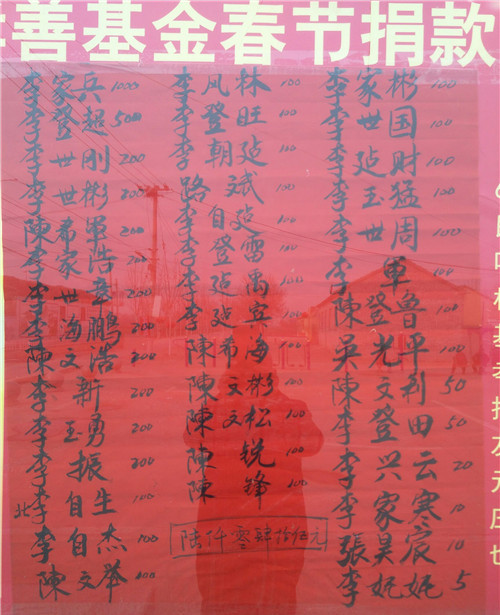 善基金春节捐款
李家兵 1000
李登超 500
李世刚 200
李世彬 200
陳希軍 200
李家浩 200
李世 200
李海鹏 200
陳文浩 200
李新 200
李玉勇 200
李振 200
北 李自生 100
李自杰 100
陳文举 100
李凤林 100
李登旺 100
李朝廷 100
李路斌 100
李自廷 100
李登雷 100
李廷禹 100
李廷宾 100
陳希海 100
陳文彬 100
陳文松 100
陳锐 100
陳锋 100
陆仟零肆拾伍元
李家彬 100
李世国 100
李廷财 100
李玉猛 100
李世周 100
李軍 100
陳登鲁 100
吴光平 100
陳文利 50
李登田 50
李兴云 20
李家寒 10
張昊宸 10
李妮妮 5